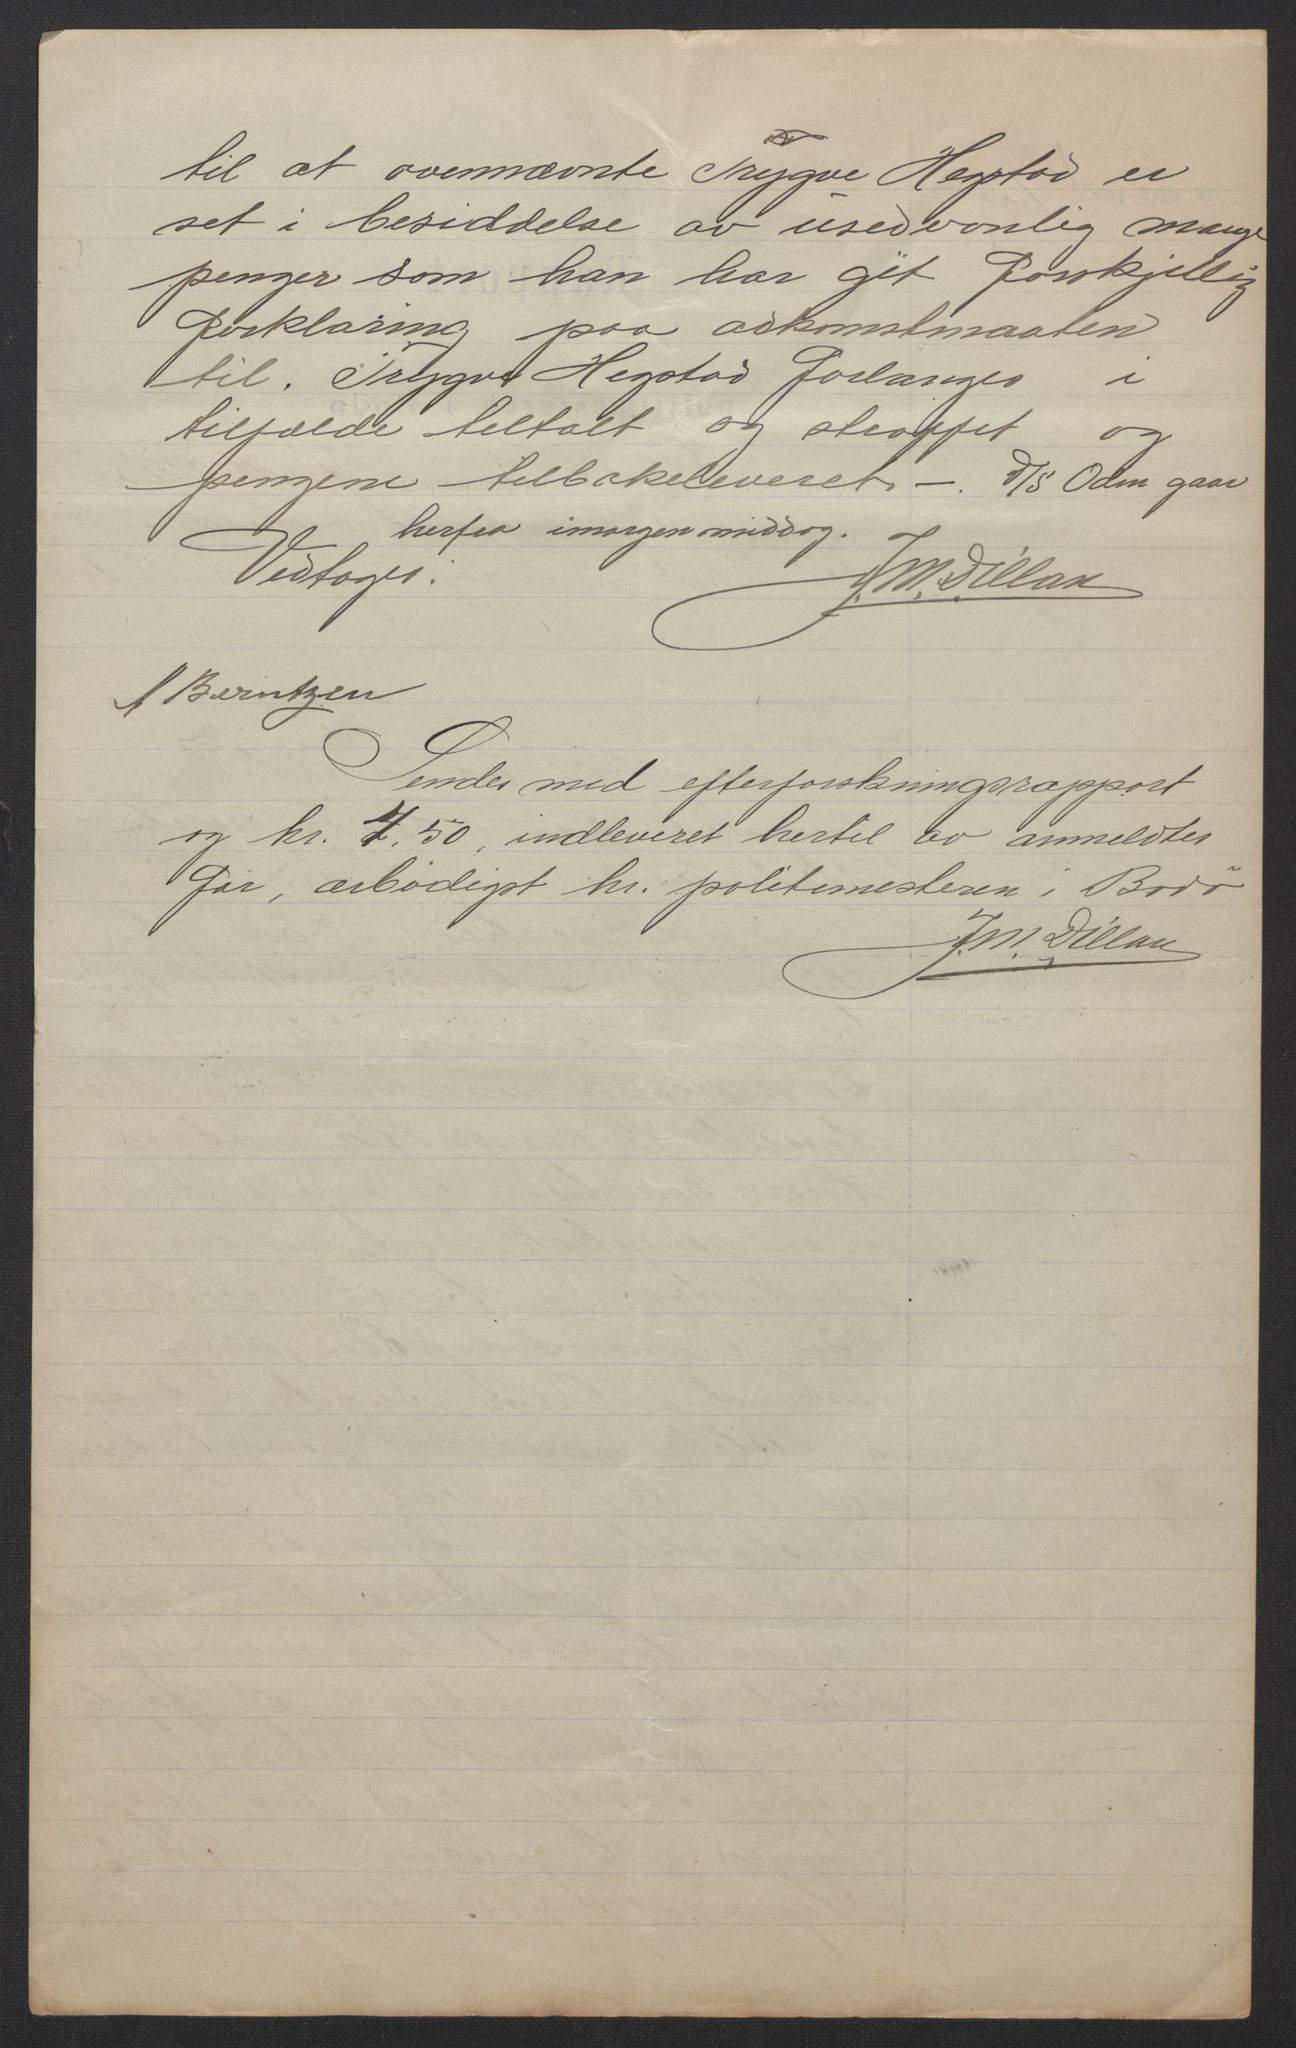 til at ovennævnte Trygve Hegstad er
set i besiddelse av usedvanlig mange
penger som han har git forskjellig
forklaring paa adkomstmaaten
til. Trygve Hegstad forlanges i
tilfælde tiltalt og straffet og
pengene tilbakeleveret. —. D/S Odin gaar
herfra imorgen middag.
Vedtages:
J. M. Dillan
A Berntzen
Sendes med efterforskningsrapport
og kr. 7.50, indleveret hertil av anmeldtes
far, ærbødigst hr. politimesteren i Bodø
J. M. Dillan